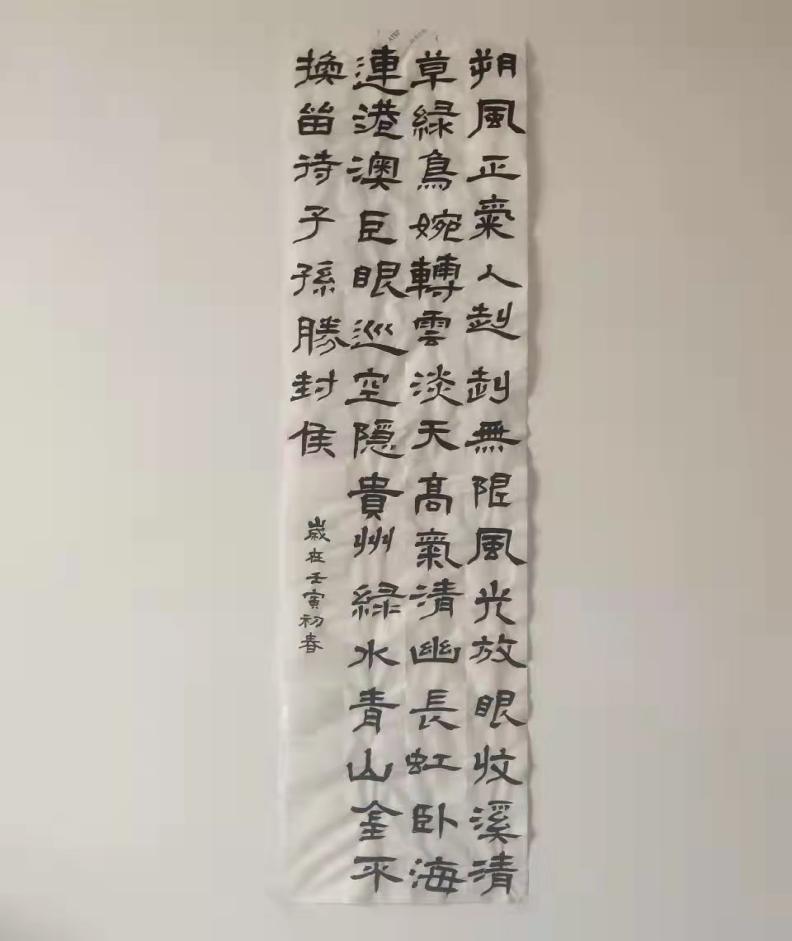 朔風正氣人赳赳無限風光放眼收溪清
草緑鳥婉轉雲淡天高氣清幽長虹卧海
連港澳巨眼巡空隱貴州緑水青山金不
換留待子孫勝封侯
歲在壬寅初春